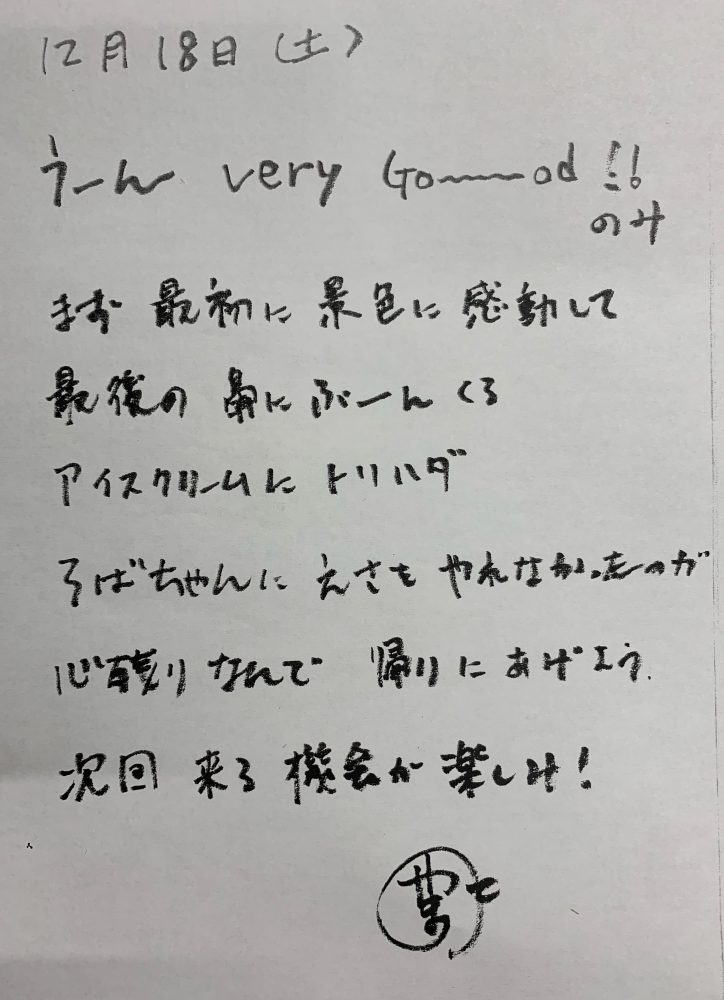 12月18日(土)
うーん very Go〜〜od!!
のみ
まず 最初に 景色に 感動して
最後の 鼻に ぶーんくる
アイスクリームに トリハダ
そばちゃんに えさを やれなかったのが
心残りなんで 帰りにあげよう.
次回 来る 機会が 楽しみ!